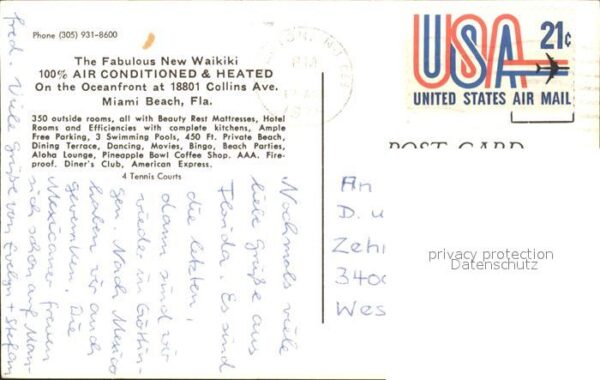 Phone (305) 931-8600
The Fabulous New Waikiki
100% AIR CONDITIONED & HEATED
On the Oceanfront at 18801 Collins Ave.
Miami Beach, Fla.
350 outside rooms, all with Beauty Rest Mattresses, Hotel
Rooms and Efficiencies with complete kitchens, Ample
Free Parking, 3 Swimming Pools, 450 Ft. Private Beach,
Dining Terrace, Dancing, Movies, Bingo, Beach Parties,
Aloha Lounge, Pineapple Bowl Coffee Shop. AAA. Fire-
proof. Diner's Club, American Express.
4 Tennis Courts
USA 21¢
UNITED STATES AIR MAIL
POST CARD
Nochmals viele
liebe Grüße aus
Florida. Es sind
die letzten,
dann sind wir
wieder in Göttin-
gen. Nach Mexico
haben wir auch
geworben. Die
Mexicaner freuen
sich schon auf Man-
fred. Viele Grüße von Evelyn + Stefan
An
D. u
Zehn
3400
Wes
privacy protection
Datenschutz